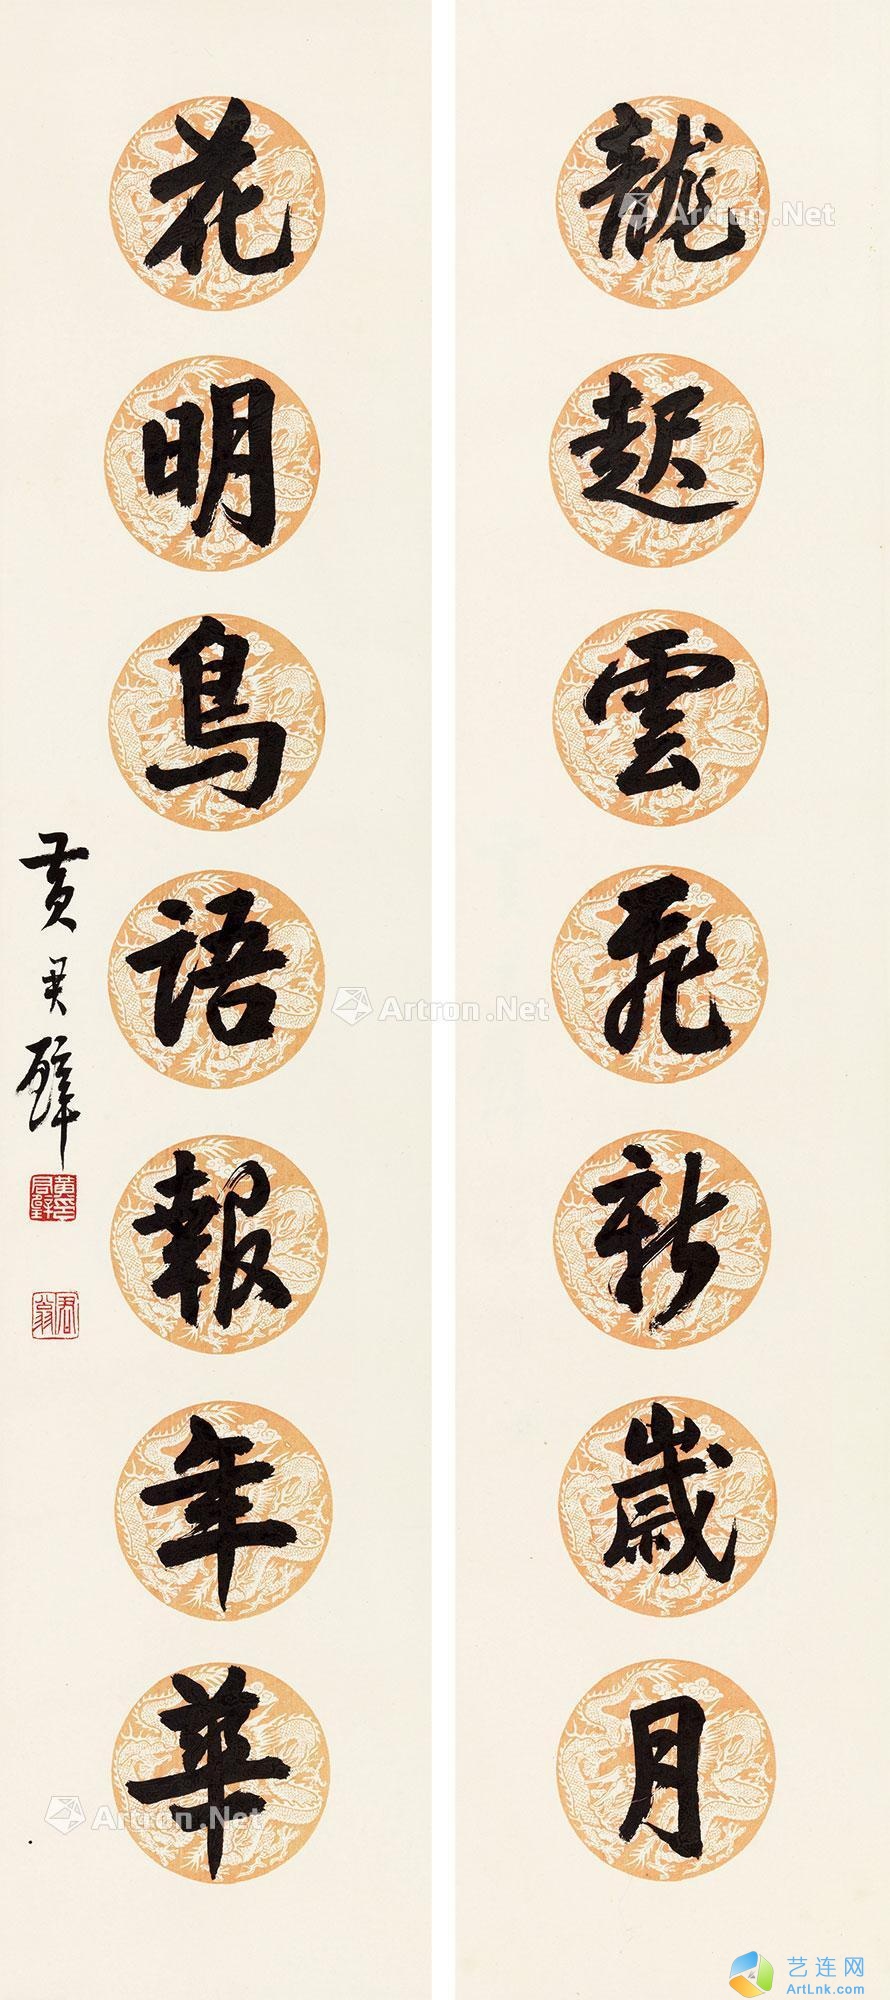 龍起雲飛新歲月
花明鳥語報年華
黃君璧
黃君璧印
君翁
Artron.Net
Artron.Net
Artron.Net
艺连网
ArtLnk.com